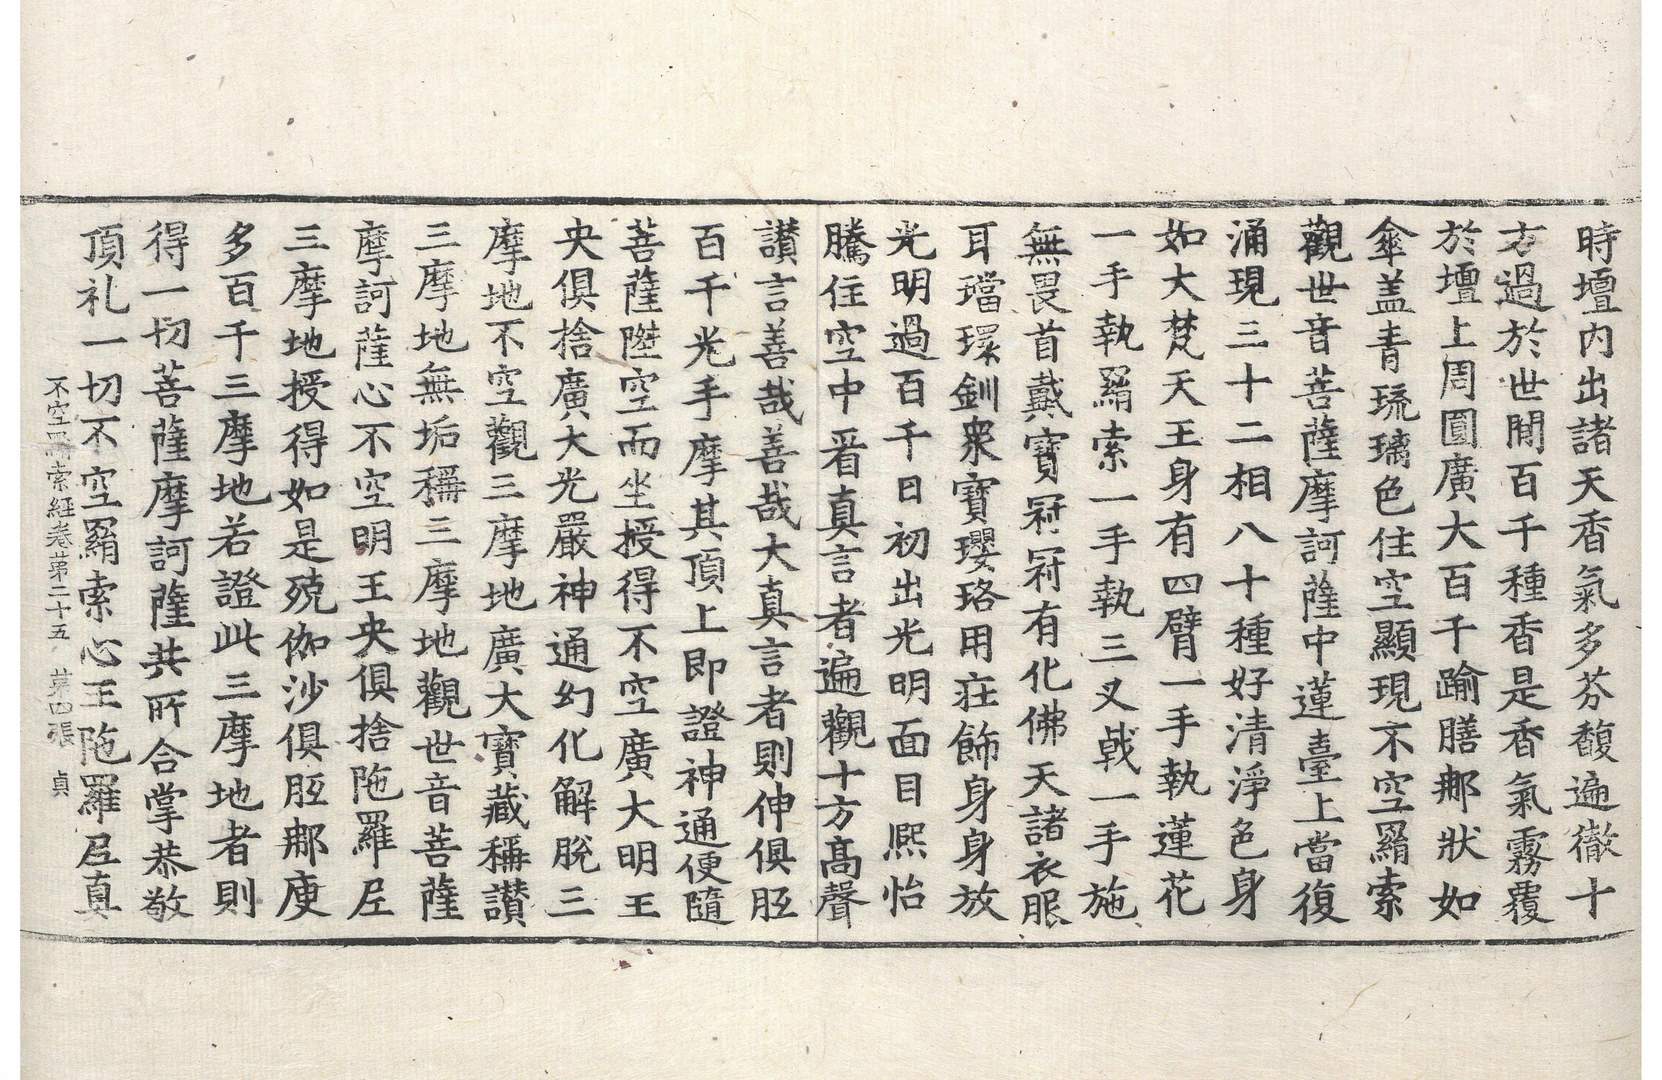 時壇內出諸天香氣多芬馥遍徹十
方過於世閒百千種香是香氣霧覆
於壇上周圓廣大百千踰膳那狀如
傘盖青琉璃色住空顯現不空羂索
觀世音菩薩摩訶薩中蓮臺上當復
涌現三十二相八十種好清淨色身
如大梵天王身有四臂一手執蓮花
一手執羂索一手執三叉戟一手施
無畏首戴寶冠冠有化佛天諸衣服
耳璫環釧衆寶瓔珞用莊飾身身放
光明過百千日初出光明面目熙怡
騰住空中看真言者遍觀十方高聲
讃言善哉善哉大真言者則伸俱胝
百千光手摩其頂上即證神通便隨
菩薩陞空而坐授得不空廣大明王
央俱捨廣大光嚴神通幻化解脫三
摩地不空觀三摩地廣大寶藏稱讃
三摩地無垢稱三摩地觀世音菩薩
摩訶薩心不空明王央俱捨陁羅尼
三摩地授得如是殑伽沙俱胝那庾
多百千三摩地若證此三摩地者則
得一切菩薩摩訶薩共所合掌恭敬
頂礼一切不空羂索心王陁羅尼真
不空羂索經卷第二十五 第四張 貞